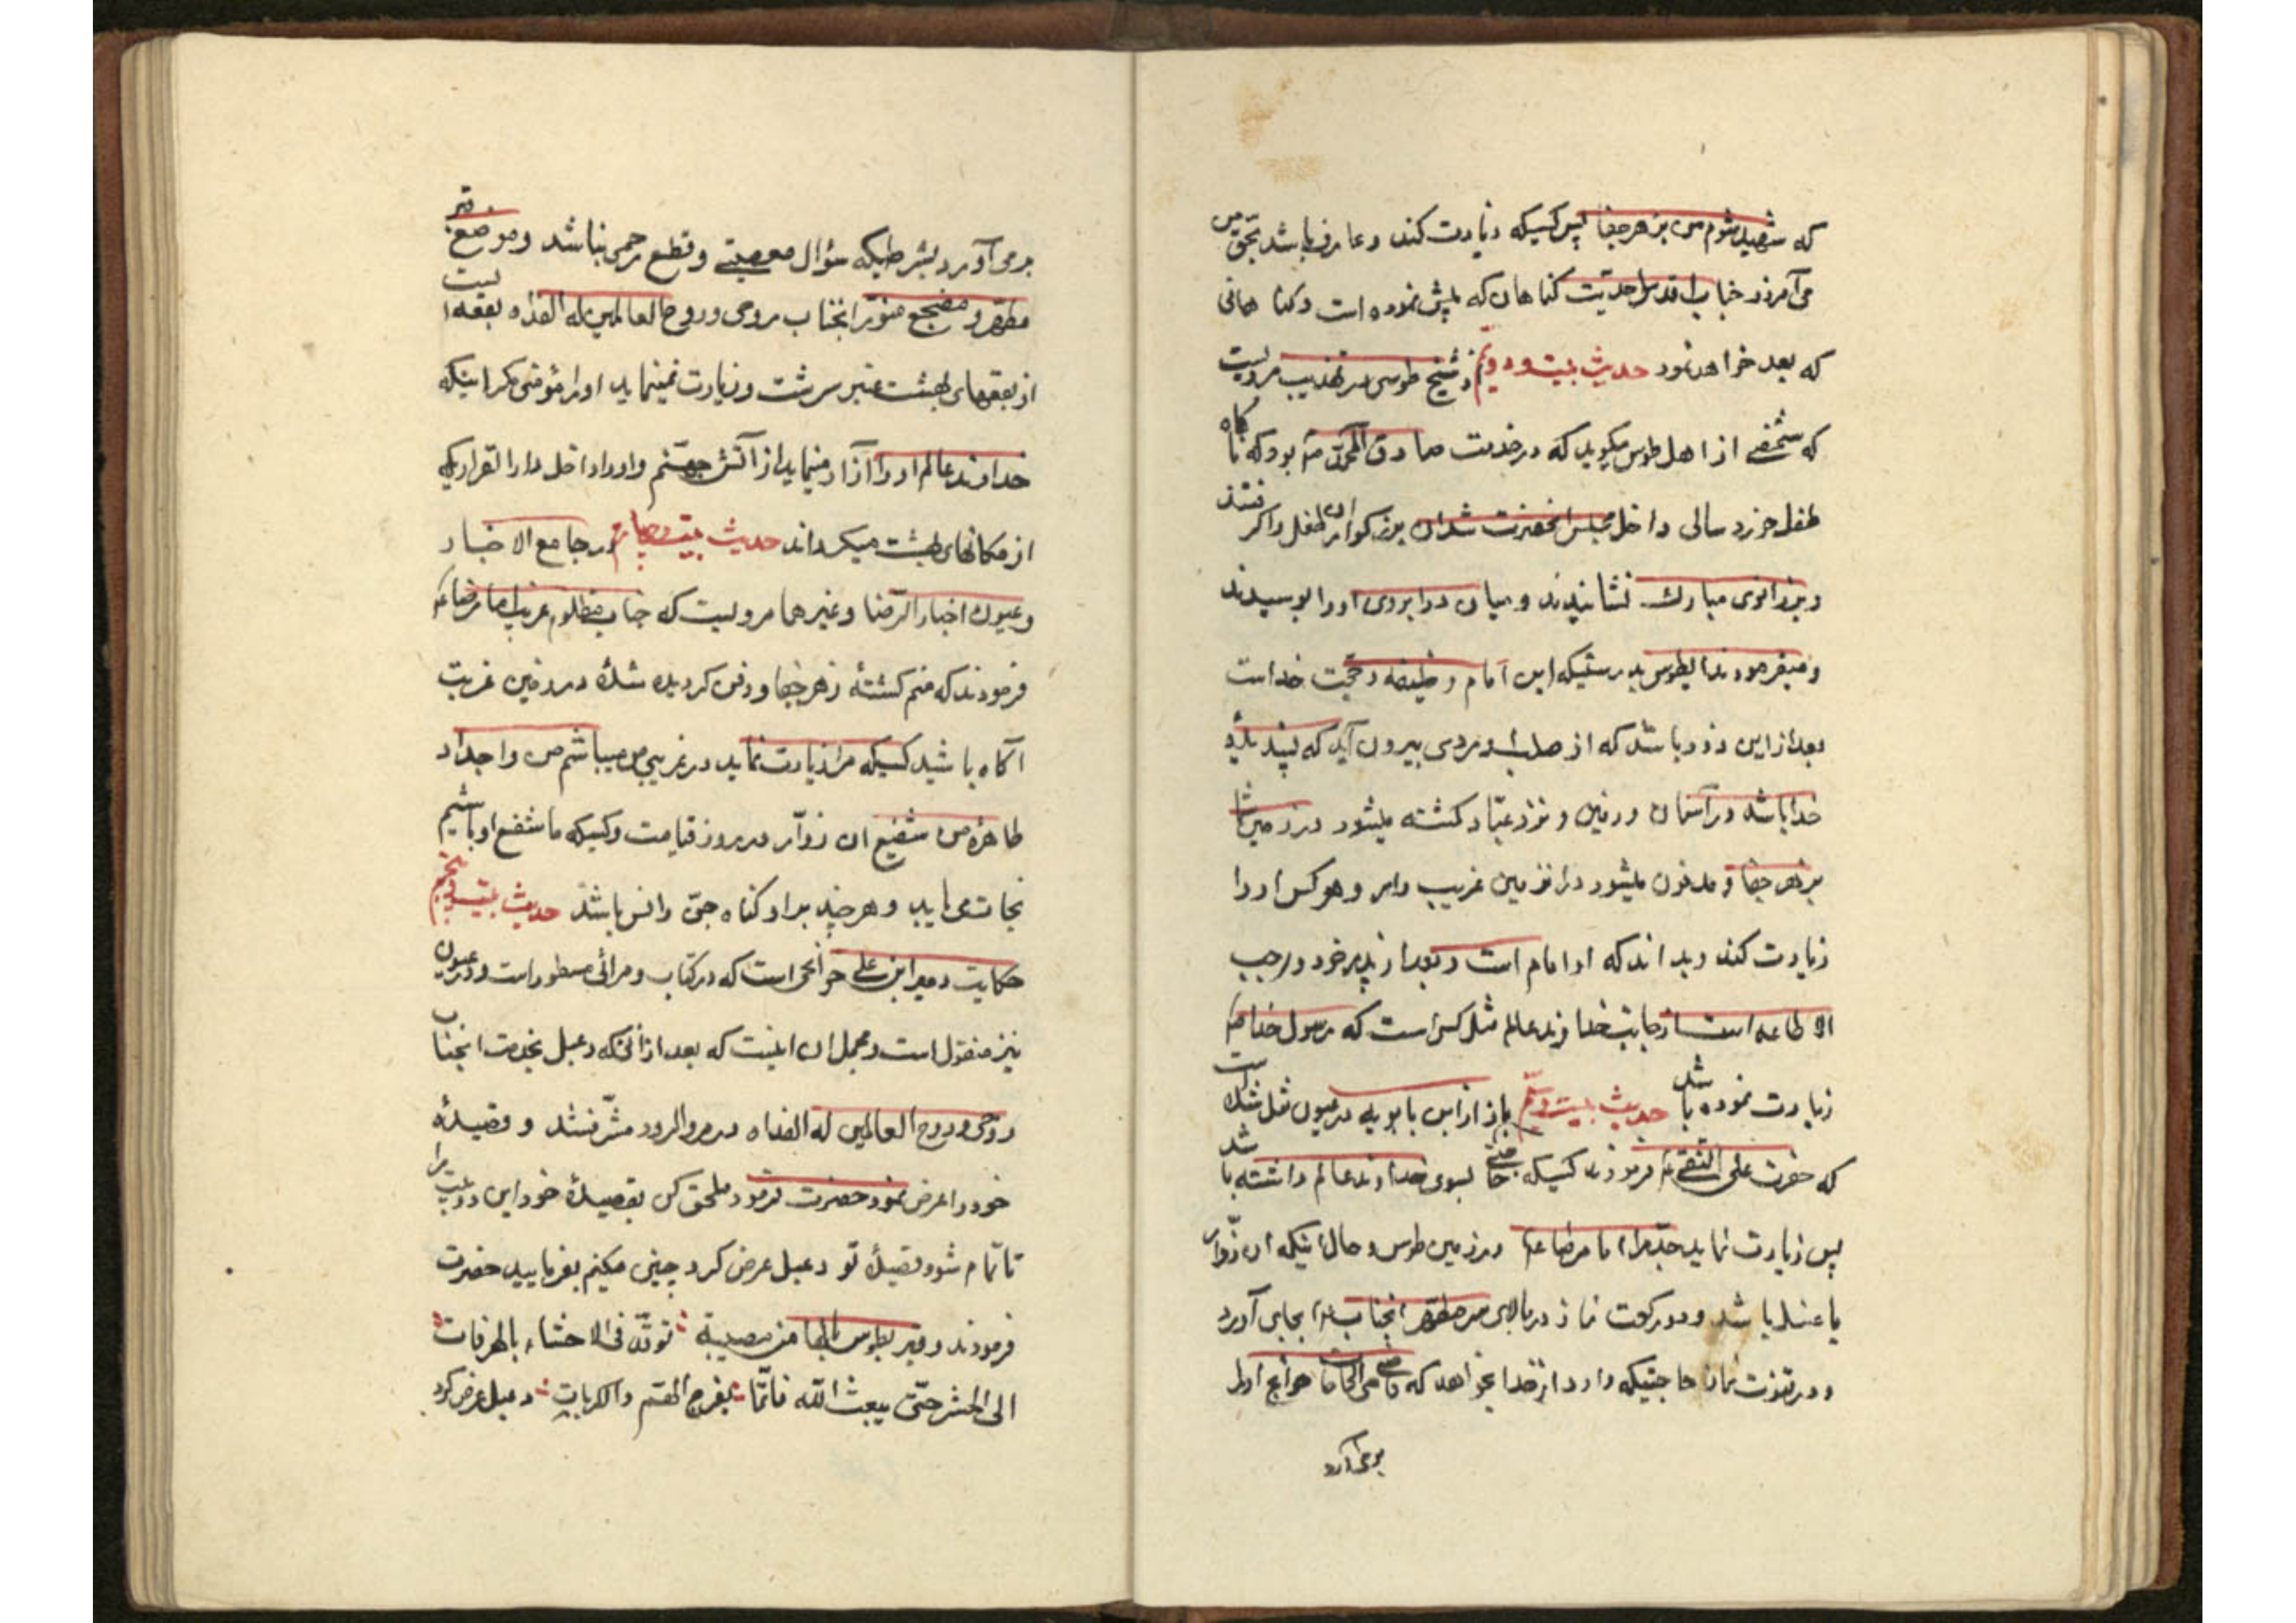 که شهید شوم من بزهر جفا پس کسیکه زیارت کند و عارف باشد بحق من
می‌آمرزد جناب اقدس احدیّت کناهان که پیش نموده است و کناهانی
که بعد خواهد نمود حدیث بیست و دویّم از شیخ طوسی در تهذیب مرویست
که شخصے از اهل طوس میکوید که در خدمت صادق آل محمّد بود که ناکاه
طفل خرد سالی داخل مجلس انحضرت شد ان بزرکوار ان طفل را کرفتند
و بزانوی مبارک نشانیدند و میان دو ابروی او را بوسیدند
و میفرمودند ایطوسی بدرستیکه این امام و خلیفه و حجّت خداست
بعد از این و زود باشد که از صلب او مردی بیرون آید که پسندیدۀ
خدا باشد در آسمان و زمین و نزد عباد کشته میشود در زمین شما
بزهر جفا و مدفون میشود در انزمین غریب وار و هر کس او را
زیارت کند و بداند که او امام است و بعد از پدر خود واجب
الاطاعه است از جانب خداوند عالم مثل کسی است که رسول خدا را
زیارت نموده باشد حدیث بیست و سیّم باز از ابن بابویه در عیون مثل شده است
که حضرت علی النقی فرمودند کسیکه حاجتے بسوی خداوند عالم داشته باشد
پس زیارت نماید جدّم امام رضا را در زمین طوس و حال اینکه ان زوّار
با غسل باشد و دو رکعت نماز در بالای سر مطهّر انجناب بجای آورد
و در قنوت نماز حاجتیکه دارد از خدا بخواهد که قاضی الحاجات حوائج او را
برمی‌آرد
برمی‌آورد بشرطیکه سؤال معصیتے و قطع رحمی نباشد و موضع قبر
مطهّر و مضجع منوّر انجناب روحی و روح العالمین له الفداه بقعه ایست
از بقعهای بهشت عنبر سرشت و زیارت نمینماید او را مؤمنی مکر اینکه
خداوند عالم او را آزاد مینماید از آتش جهنّم و او را داخل دار القرار یکی
از مکانهای بهشت میکرداند حدیث بیست و چهارم در جامع الاخبار
و عیون اخبار الرّضا و غیرهما مرویست که جناب مظلوم غریب امام رضا ع
فرمودند که منم کشته زهر جفا و دفن کردیده شدۀ در زمین غربت
آکاه باشید کسیکه مرا زیارت نماید در غریبی من میباشم من و اجداد
طاهرۀ من شفیع ان زوّار در روز قیامت و کسیکه ما شفیع او باشیم
نجات می‌یابد و هر چند بر او کناه جنّ و انس باشد حدیث بیست و پنجم
حکایت دعبل ابن علی خزاعی است که در کتاب و مراثی مسطور است و در عیون
نیز منقول است و مجمل ان اینست که بعد از انکه دعبل بخدمت انجناب
روحی و روح العالمین له الفداه در مرو الرود مشرّف شد و قصیدۀ
خود را عرض نمود حضرت فرمود ملحق کن بقصیدۀ خود این دو بیت را
تا تمام شود قصیدۀ تو دعبل عرض کرد چنین میکنم بفرمایید حضرت
فرمودند و قبر بطوس یا لها من مصیبة ∴ توقّد فی الاحشاء بالحرقات
الی الحشر حتّی یبعث اللّه قائمًا ∴ یفرج الهمّ و الکربات ∴ دعبل عرض کرد